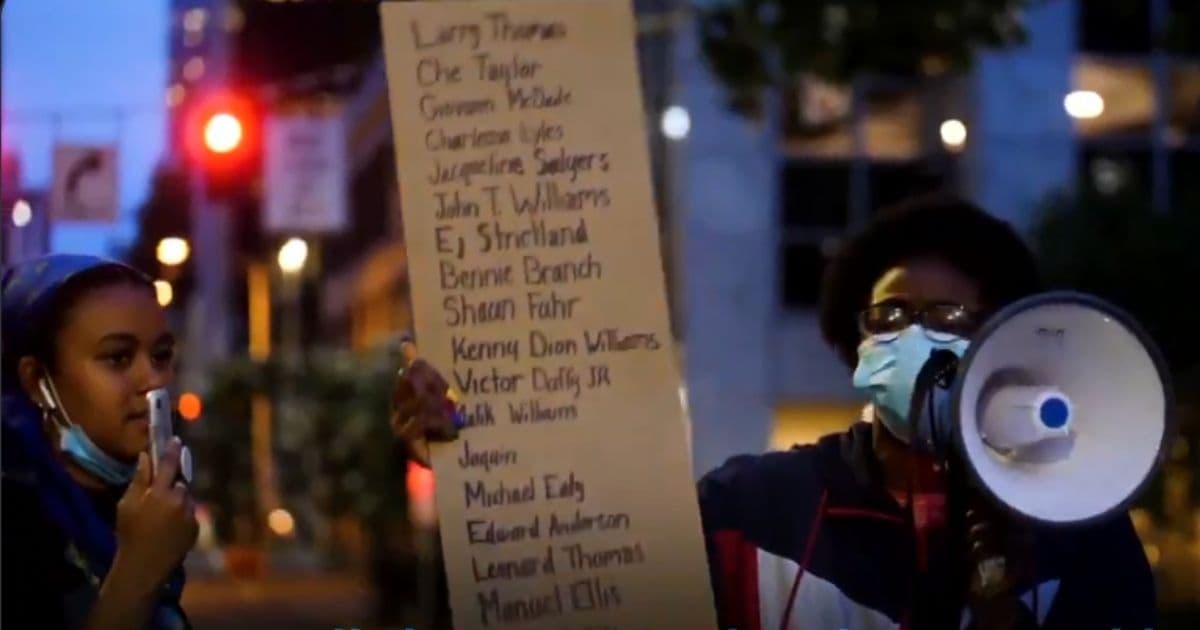 Larry Thomas
Che Taylor
Giovonn McDade
Charleena Lyles
Jacqueline Salyers
John T. Williams
Ej Strictland
Bennie Branch
Shaun Fuhr
Kenny Dion Williams
Victor Duffy JR
Malik Williams
Jaquin
Michael Ealy
Edward Anderson
Leonard Thomas
Manuel Ellis